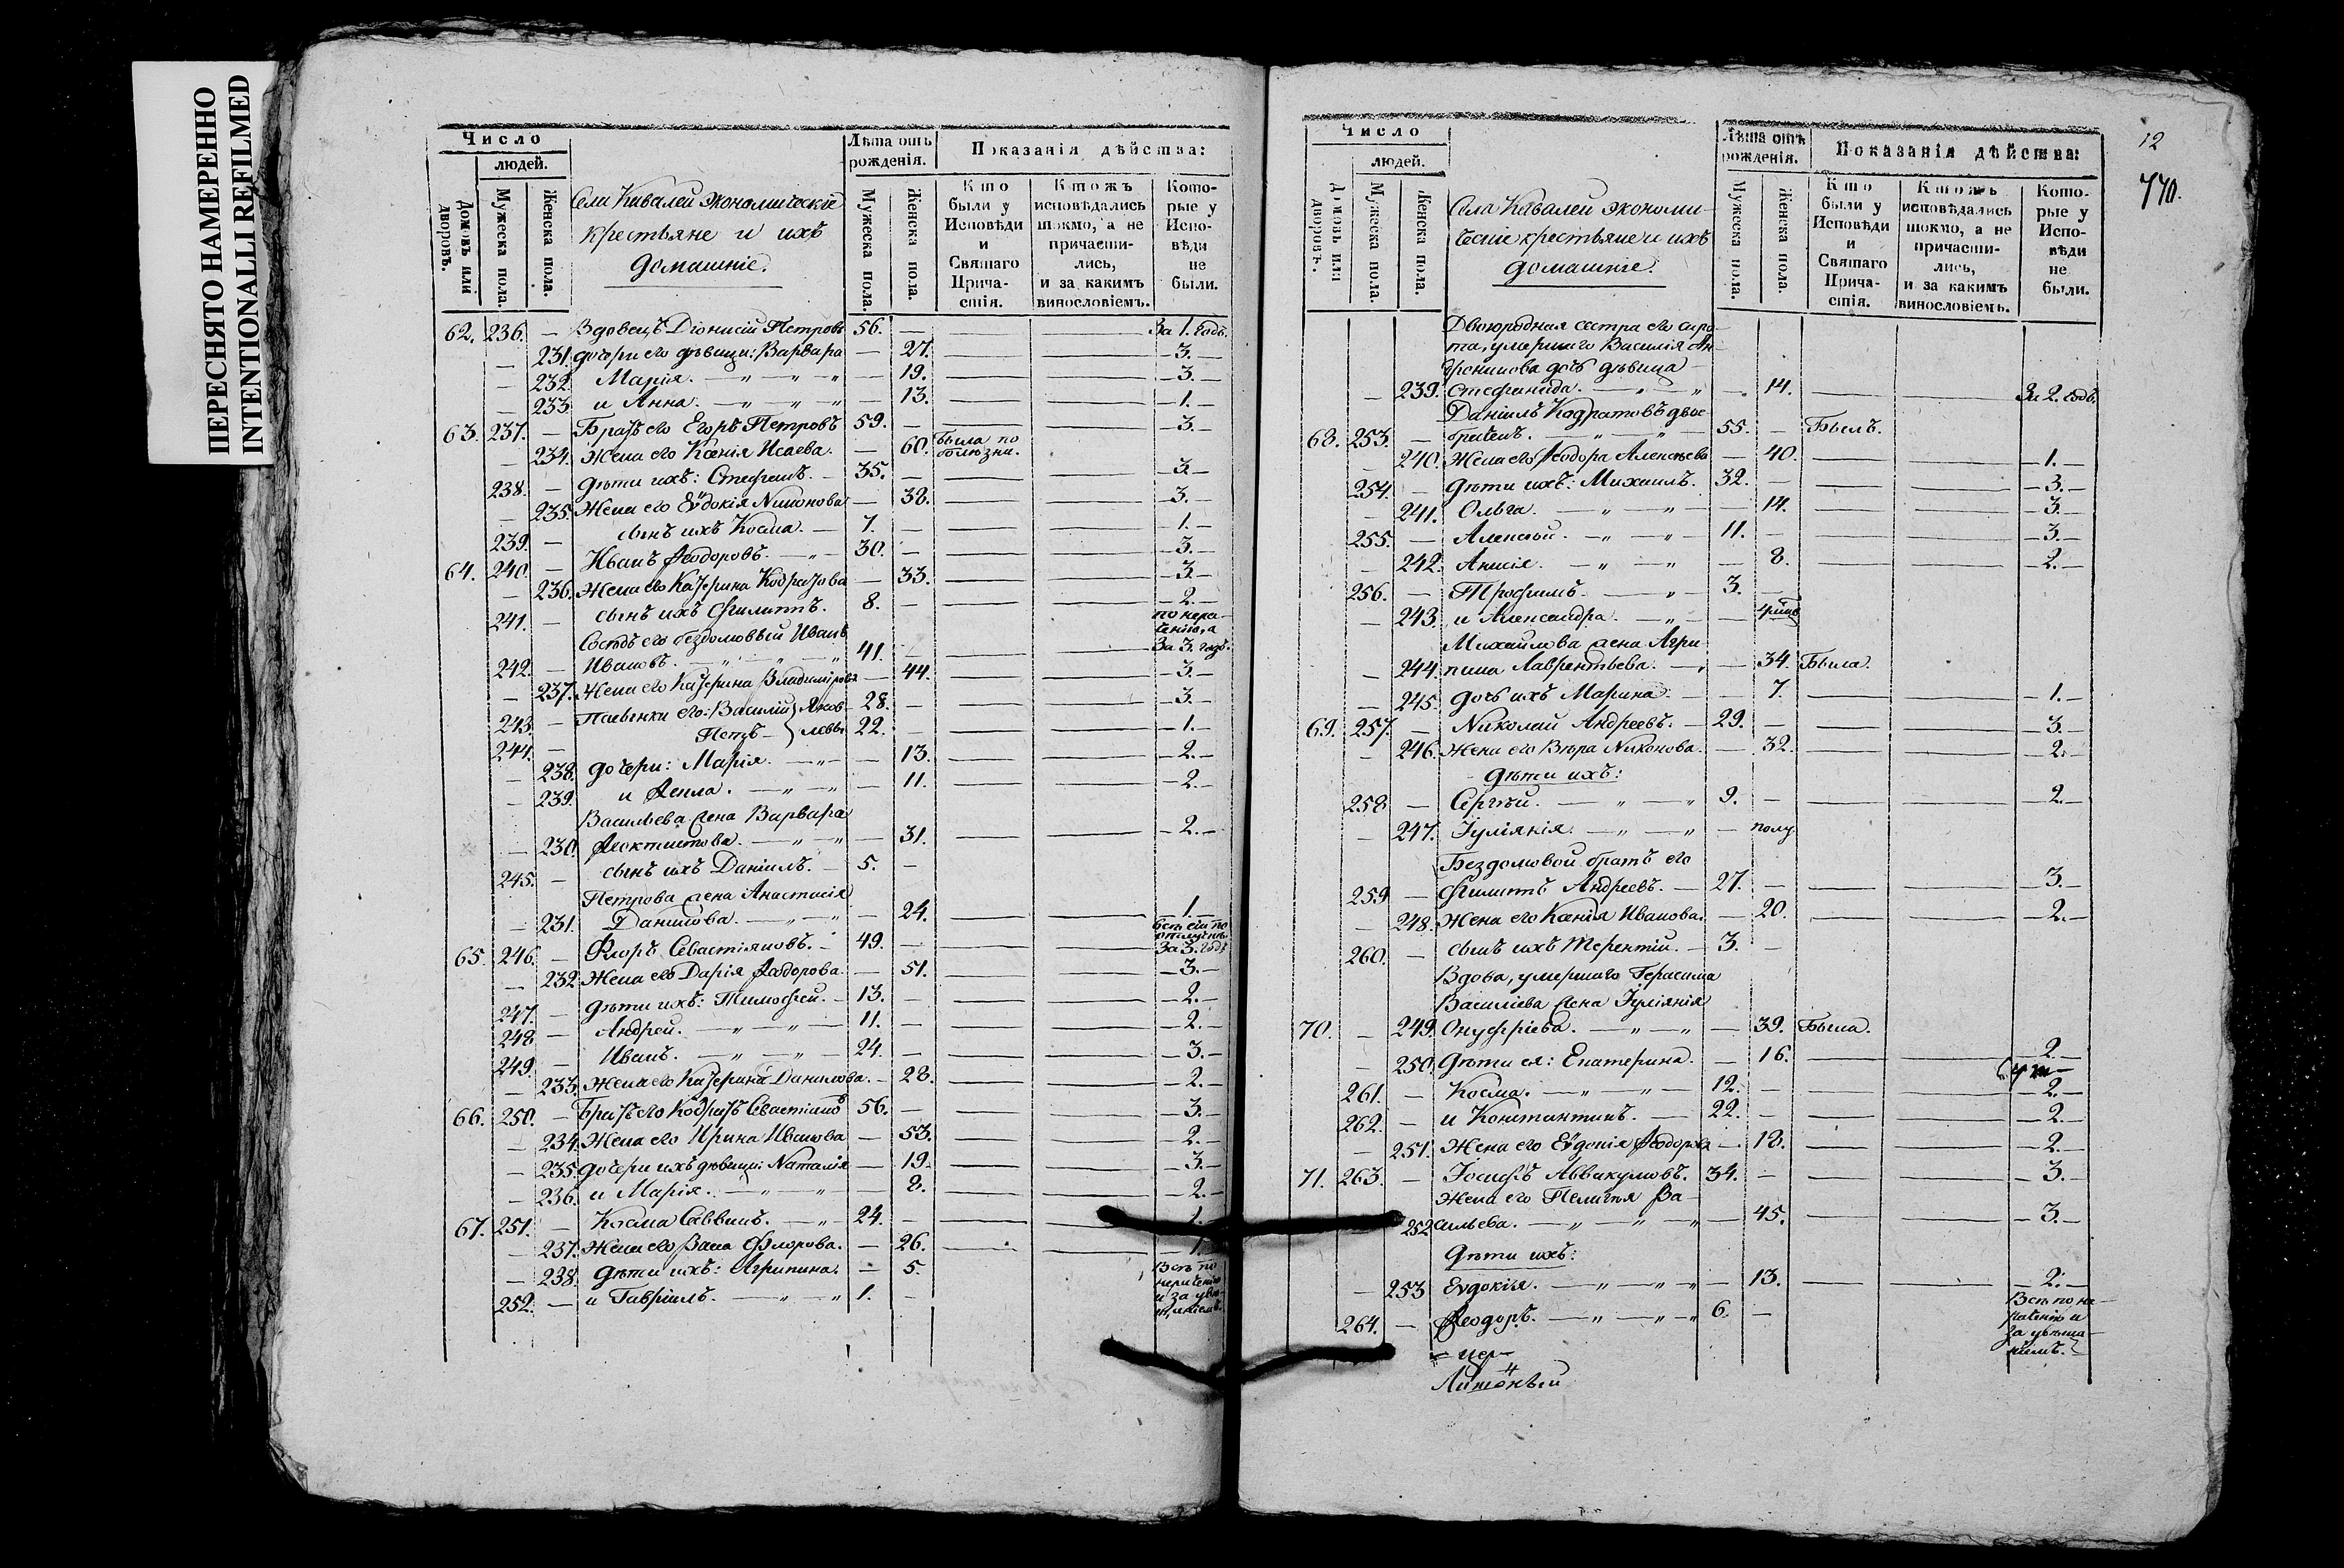 ПЕРЕСНЯТО НАМЕРЕННО
INTENTIONALLI REFILMED
Число
людей.
Домовъ или дворовъ.
Мужеска пола.
Женска пола.
Села Кавалей экономическіе
крестьяне и ихъ
домашніе.
Лѣта отъ рожденія.
Мужеска пола.
Женска пола.
Показанія дѣйства:
Кто были у Исповѣди и Святаго Прича-стія.
Ктожъ исповѣдались токмо, а не причасти-лись, и за какимъ винословіемъ.
Кото-рые у Испо-вѣди не были.
62. 236. — Вдовецъ Діонисій Петровъ 56. — За 1. годъ.
— 231. дочери его дѣвицы: Варвара — 27. — 3. —
— 232. Марія. — „ — „ — „ 19. — 3. —
— 233. и Анна. — „ — „ — „ — 13. — 1. —
63. 237. — Братъ его Егоръ Петровъ 59. — 3. —
— 234. Жена его Ксенія Исаева. — 60. была по болѣзни.
238. — дѣти ихъ: Стефанъ. — 35. — 3. —
— 235. Жена его Евдокія Никонова — 38. — 3. —
239. — сынъ ихъ Косма. — 7. — 1. —
64. 240. — Иванъ Ѳеодоровъ. — „ — 30. — 3. —
— 236. Жена его Катерина Кодратова — 33. — 3. —
241. — сынъ ихъ Филиппъ. 8. — 2. —
по нера-
ченію, а
Сосѣдъ его бездомовый Иванъ
242. — Ивановъ. — „ — „ — „ 41. — За 3. годъ.
— 237. Жена его Катерина Владимірова — 44. — 3. —
243. — Пасынки его: Василій } Яков- 28. — 3. —
244. — Петръ — } левы 22. — 1. —
— 238. дочери: Марія. — „ — — 13. — 2. —
— 239. и Ѳекла. — „ — „ — 11. — 2. —
Васильева жена Варвара
— 230. Ѳеоктистова. — „ — „ — 31. — 2. —
245. — сынъ ихъ Даніилъ. — 5. —
Петрова жена Анастасія
— 231. Данилова. — „ — „ — 24. — 1. —
65. 246. — Флоръ Севастіяновъ. — 49. — За 3. годъ
— 232. Жена его Дарія Ѳеодорова. — 51. — 3. —
247. — дѣти ихъ: Тимофей. — 13. — 2. —
248 — Андрей. — „ — „ — 11. — 2. —
249. — Иванъ. — „ — „ — 24. — 3. —
— 233. Жена его Катерина Данилова. — 28. — 2. —
66. 250. — Братъ его Кодратъ Севастіяновъ 56. — 3. —
— 234. Жена его Ирина Иванова — 53. — 2. —
— 235. дочери ихъ дѣвицы: Наталія — 19. — 3. —
— 236. и Марія. — „ — „ — 8. — 2. —
67. 251. — Косма Саввинъ. — „ — 24. — 1. —
— 237. Жена его Васа Флорова. — 26. — 1.
— 238. дѣти ихъ: Агрипина. — 5.
252. — и Гавріилъ. — „ — „ 1. —
Всѣ по
нераченію
12
770.
Число
людей.
Домовъ или дворовъ.
Мужеска пола.
Женска пола.
Села Кавалей экономи-
ческіе крестьяне и ихъ
домашніе.
Лѣта отъ рожденія.
Мужеска пола.
Женска пола.
Показанія дѣйства:
Кто были у Исповѣди и Святаго Прича-стія.
Ктожъ исповѣдались токмо, а не причасти-лись, и за какимъ винословіемъ.
Кото-рые у Испо-вѣди не были.
Двоюродная сестра его сиро-
та, умершаго Василія Ан-
дроникова дочь дѣвица —
— 239. Стефанида. — „ — „ — 14. — За 2. годъ.
Даніилъ Кодратовъ двое-
68. 253. — браченъ. — „ — „ — 55. — Былъ.
— 240. Жена его Ѳеодора Алексѣева — 40. — 1. —
254. — дѣти ихъ: Михаилъ. 32. — 3. —
— 241. Ольга. — „ — „ — 14. — 3. —
255. — Алексѣй. — „ — „ — 11. — 3. —
— 242. Анисія. — „ — „ — 8. — 2. —
256. — Трофимъ. — „ — 3. —
— 243. и Александра. — „ —
Михайлова жена Агри-
— 244. пина Лаврентьева. — „ — 34. Была.
— 245. дочь ихъ Марина. — 7. — 1. —
69. 257. — Николай Андреевъ. — 29. — 3. —
— 246. Жена его Вѣра Никонова. — 32. — 2. —
дѣти ихъ:
258 — Сергѣй. — „ — „ 9. — 2. —
— 247. Іуліянія. — „ — „ — полу.
Бездомовой братъ его
259 — Филиппъ Андреевъ. — 27. — 3. —
— 248. Жена его Ксенія Иванова. — 20. — 2. —
260. — сынъ ихъ Терентій. — 3. —
Вдова, умершаго Герасима
Василіева жена Іуліянія
70. — 249. Онуфріева. — „ — „ — 39. Была.
— 250. Дѣти ея: Екатерина. — 16. — 2. —
261. — Косма. — „ — „ — 12. — 2. —
262. — и Константинъ. — 22. — 2. —
— 251. Жена его Евдокія Ѳеодорова — 18. — 2. —
71. 263. — Іосифъ Аввакумовъ. 34. — 3. —
Жена его Пелагія Ва-
252 сильева. — „ — „ — „ — 45. — 3. —
Дѣти ихъ:
— 253 Евдокія. — „ — „ — „ — 13. — 2. —
264. — Ѳеодоръ. — „ — „ — „ 6. —
Всѣ по не-
раченію и